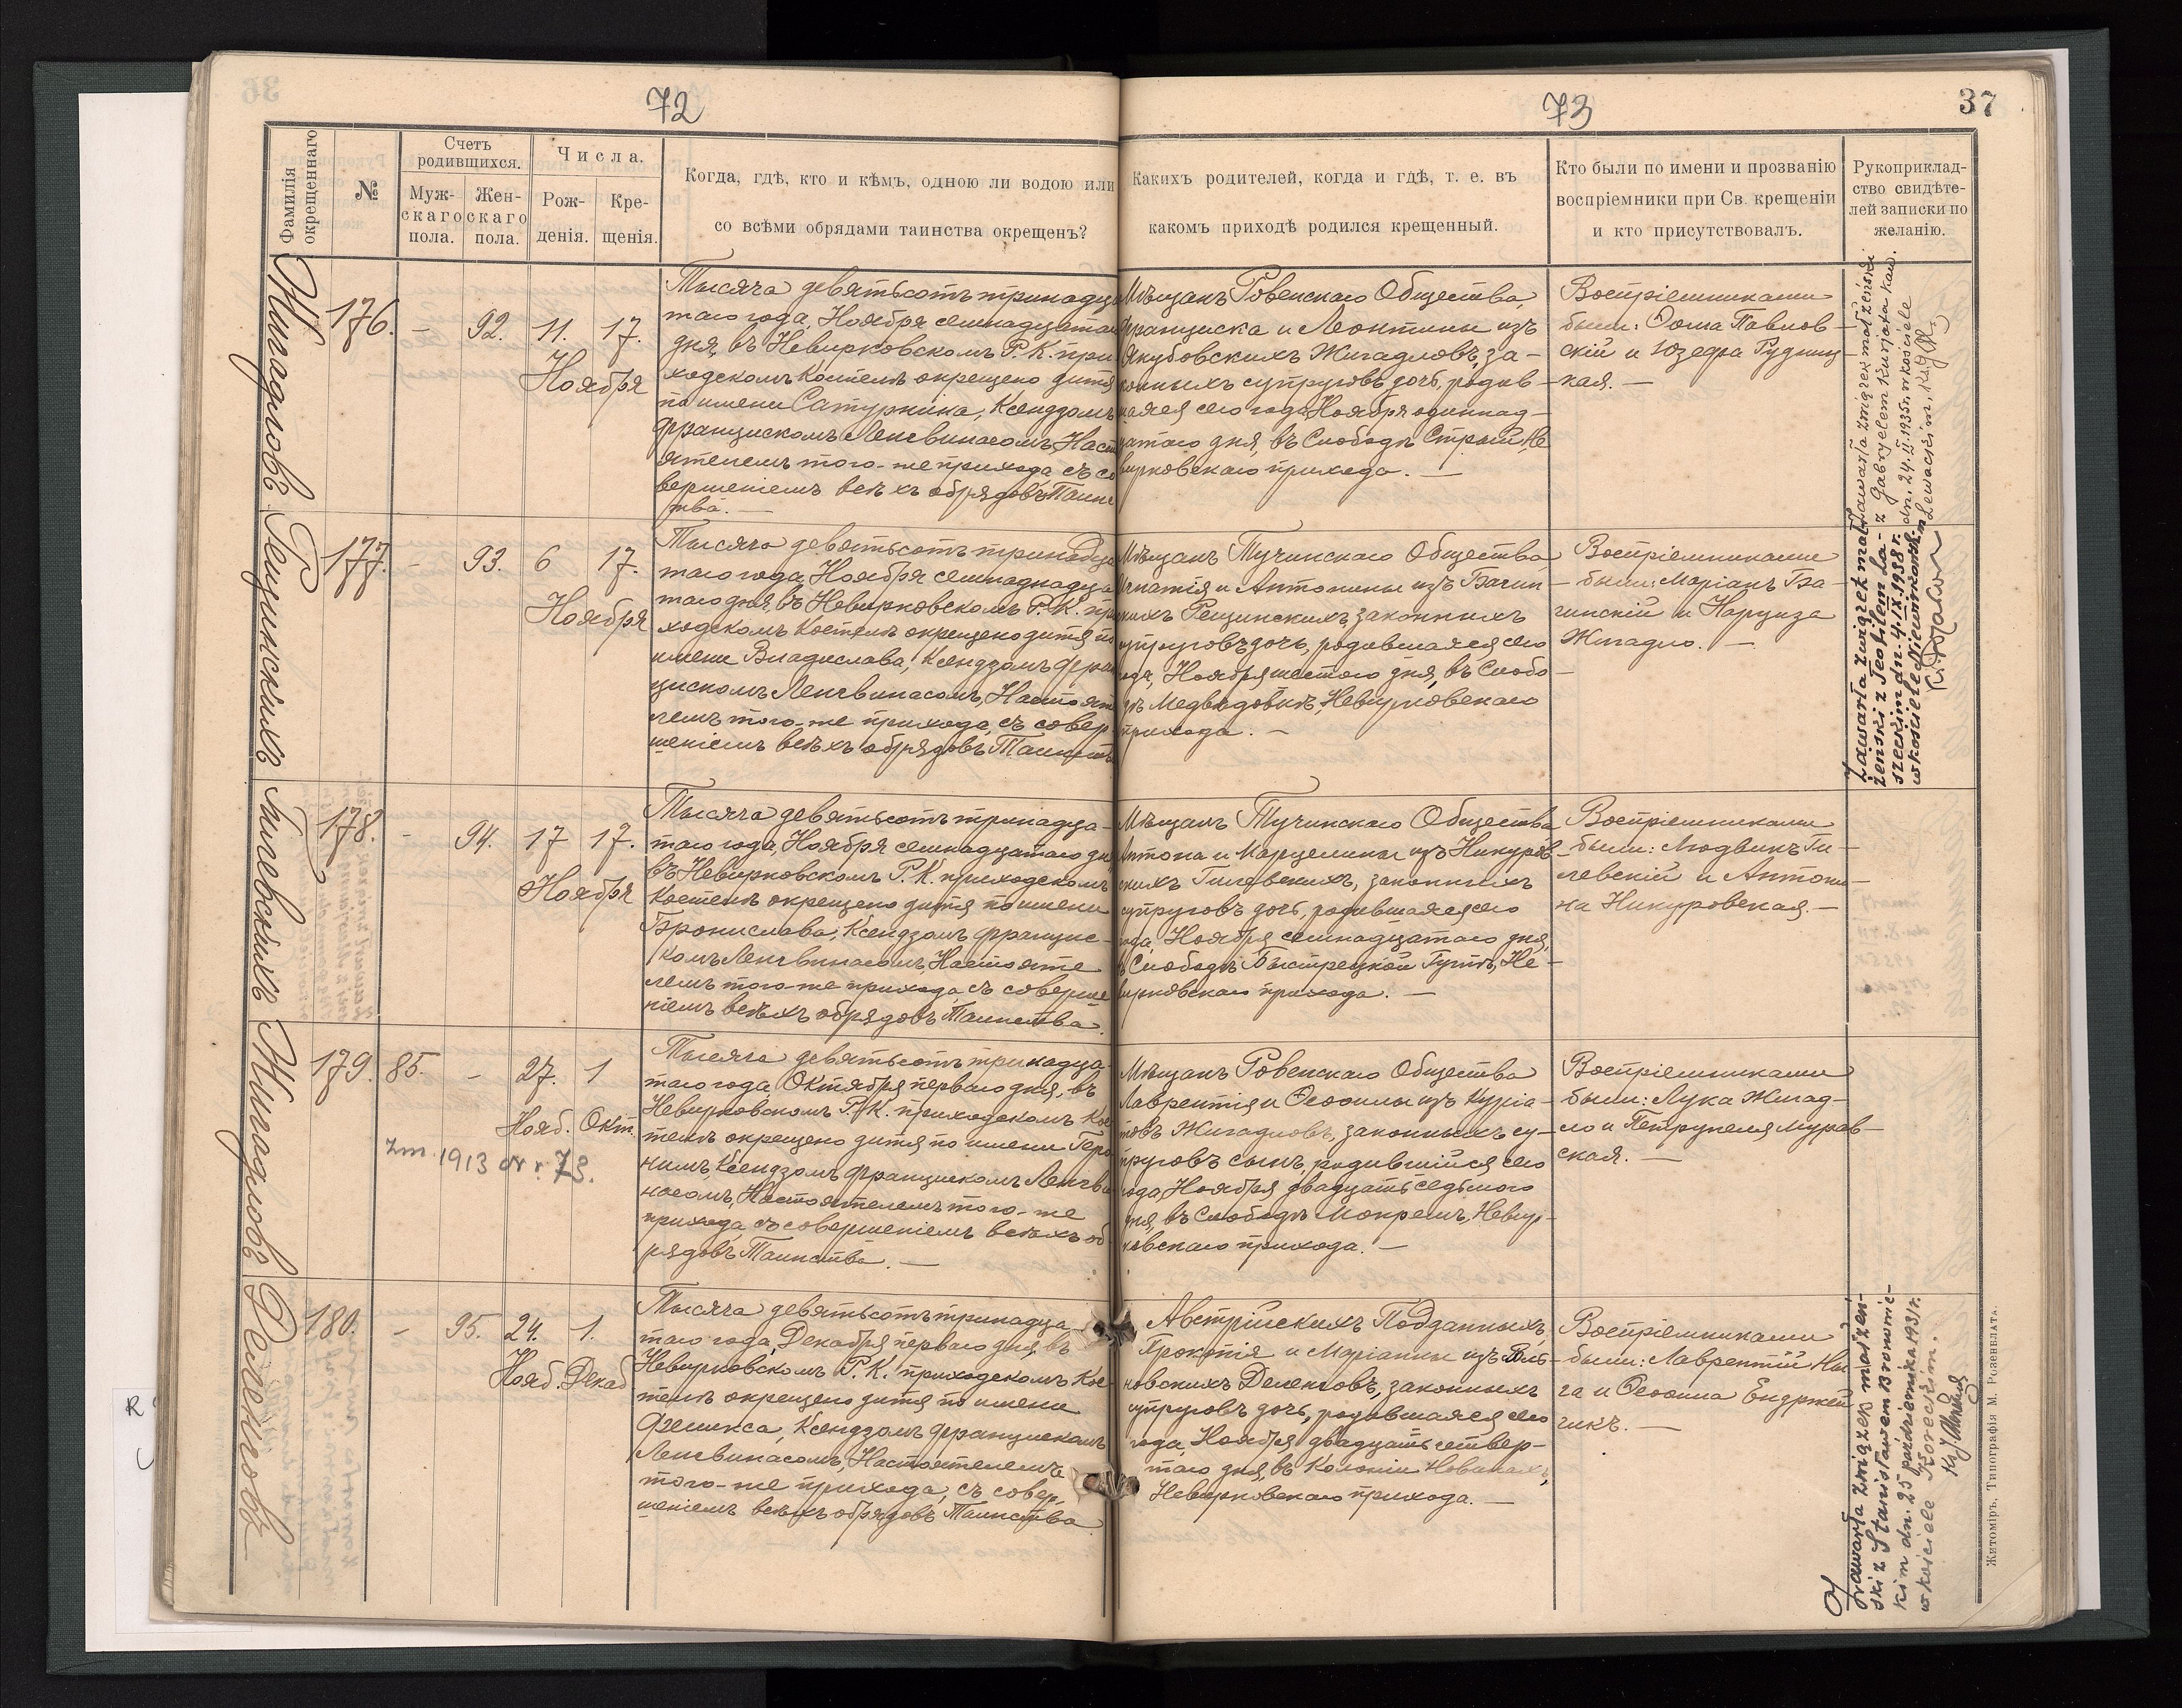 72
73
37
Фамилія окрещеннаго
№
Счетъ родившихся.
Муж-скаго пола.
Жен-скаго пола.
Числа.
Рож-денія.
Кре-щенія.
Когда, гдѣ, кто и кѣмъ, одною ли водою или
со всѣми обрядами таинства окрещенъ?
Какихъ родителей, когда и гдѣ, т. е. въ
какомъ приходѣ родился крещенный.
Кто были по имени и прозванію
воспріемники при Св. крещеніи
и кто присутствовалъ.
Рукоприклад-
ство свидѣте-
лей записки по
желанію.
Жигадловъ
176. - 92. 11. 17.
Ноября
Тысяча девятьсотъ тринадца
таго года, Ноября семнадцатаго
дня, въ Невирковскомъ Р. К. при
ходскомъ Костелѣ окрещено дитя
по имени Сатурнина, Ксендзомъ
Францискомъ Ленгвинасомъ, Наст
оятелемъ того-же прихода съ со
вершеніемъ всѣхъ обрядовъ Таин
ства. —
Мѣщанъ Ровенскаго Общества,
Франциска и Леонтины изъ
Якубовскихъ Жигадловъ, за-
конныхъ супруговъ дочь, родив-
шаяся сего года Ноября одиннад-
цатаго дня, въ Слободѣ Строй, Не
вирковскаго прихода. —
Воспріемниками
были: Ѳома Павлов-
скій и Юзефа Рудниц-
кая. —
zawarła związek małżeński
z Gabryelem Kurjata kaw.
dn. 24.II.1935r. w kościele
Рещинскихъ
177. - 93. 6 17.
Ноября
Тысяча девятьсотъ тринадца
таго года, Ноября семнаднадца
таго дня, въ Невирковскомъ Р. К. при
ходскомъ Костелѣ окрещено дитя по
имени Владислава, Ксендзомъ Фран
цискомъ Ленгвинасомъ, Настояте
лемъ того-же прихода, съ совер
шеніемъ всѣхъ обрядовъ Таинств
Мѣщанъ Тучинскаго Общества,
Игнатія и Антонины изъ Багин
скихъ Рещинскихъ, законныхъ
супруговъ дочь, родившаяся сего
года, Ноября шестого дня, въ Слобо-
дѣ Медвѣдовкѣ, Невирковскаго
прихода. —
Воспріемниками
были: Маріанъ Ба-
гинскій и Нарциза
Жигадло. —
Zawarła związek mał-
żeński z Teofilem Ła-
szeckim dn. 4.IX.1938 r.
w kościele Niewirkowsk.
Гилевскихъ
178. - 94. 17 17.
Ноября
Тысяча девятьсотъ тринадца-
таго года, Ноября семнадцатаго дня
въ Невирковскомъ Р. К. приходскомъ
Костелѣ окрещено дитя по имени
Бронислава, Ксендзомъ Францис-
комъ Ленгвинасомъ, Настояте
лемъ того-же прихода, съ соверше
ніемъ всѣхъ обрядовъ Таинства.
Мѣщанъ Тучинскаго Общества
Антона и Марцелины изъ Никуров-
скихъ Гилевскихъ, законныхъ
супруговъ дочь, родившаяся сего
года, Ноября семнадцатаго дня,
въ Слободѣ Быстрецкой Гутѣ, Не-
вирковскаго прихода. —
Воспріемниками
были: Людвикъ Ги-
левскій и Антони-
на Никуровская. —
Жигадловъ
179. 85. - 27. 1
Нояб. Окт.
zm. 1913 Nr. 73.
Тысяча девятьсотъ тринадца-
таго года, Октября перваго дня, въ
Невирковскомъ Р. К. приходскомъ Кос
телѣ окрещено дитя по имени Геро
нимъ, Ксендзомъ Францискомъ Ленгви
насомъ, Настоятелемъ того-же
прихода, съ совершеніемъ всѣхъ об
рядовъ Таинства. —
Мѣщанъ Ровенскаго Общества
Лаврентія и Ѳеофилы изъ Курія-
товъ Жигадловъ, законныхъ су-
пруговъ сынъ, родившійся сего
года, Ноября двадцать седьмого
дня, въ Слободѣ Мокремъ, Невир-
ковскаго прихода. —
Воспріемниками
были: Лука Жигад-
ло и Петрунеля Мурав-
ская. —
Деленговъ
180. - 95. 24. 1.
Нояб. Декаб
Тысяча девятьсотъ тринадца
таго года, Декабря перваго дня, въ
Невирковскомъ Р. К. приходскомъ Кос-
телѣ окрещено дитя по имени
Фелинса, Ксендзомъ Францискомъ
Ленгвинасомъ, Настоятелемъ
того-же прихода, съ совер
шеніемъ всѣхъ обрядовъ Таинства
Австрійскихъ Подданныхъ,
Прокопія и Маріанны изъ Виль-
новскихъ Деленговъ, законныхъ
супруговъ дочь, родившаяся сего
года, Ноября двадцать четвер-
таго дня, въ Колоніи Новинахъ,
Невирковскаго прихода. —
Воспріемниками
были: Лаврентій
и Ѳеофила Ендржей
чикъ. —
Zawarła związek małżeń-
ski z Stanisławem Bronowic-
kim dn. 25 października 1931 r.
w kościele Koreckim.
Житоміръ, Типографія М. Розенблата.